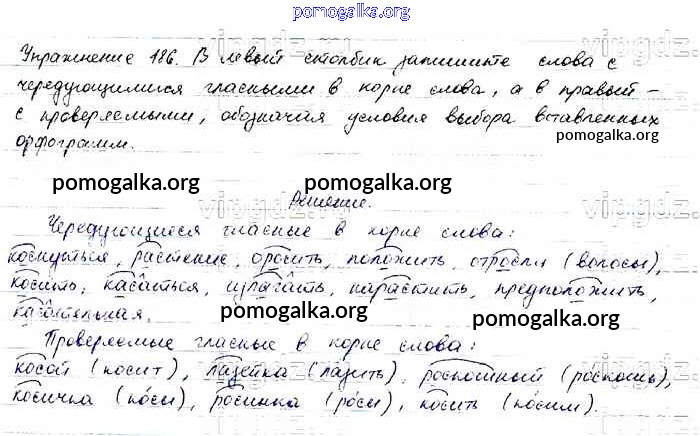 pomogalka.org
Упражнение 186. В левый столбик запишите слова с
чередующимися гласными в корне слова, а в правый –
с проверяемыми, обозначая условия выбора вставленных
pomogalka.org
орфограмм.
pomogalka.org pomogalka.org
Решение.
Чередующиеся гласные в корне слова:
коснуться, растение, оросить, положить, отросли (волосы),
косить, касаться, излагать, нарастить, предположить,
касательная.
pomogalka.org pomogalka.org
Проверяемые гласные в корне слова:
косой (косит), лазейка (лазить), роскошный (роскошь),
косичка (косы), росинка (росы), косить (косим).